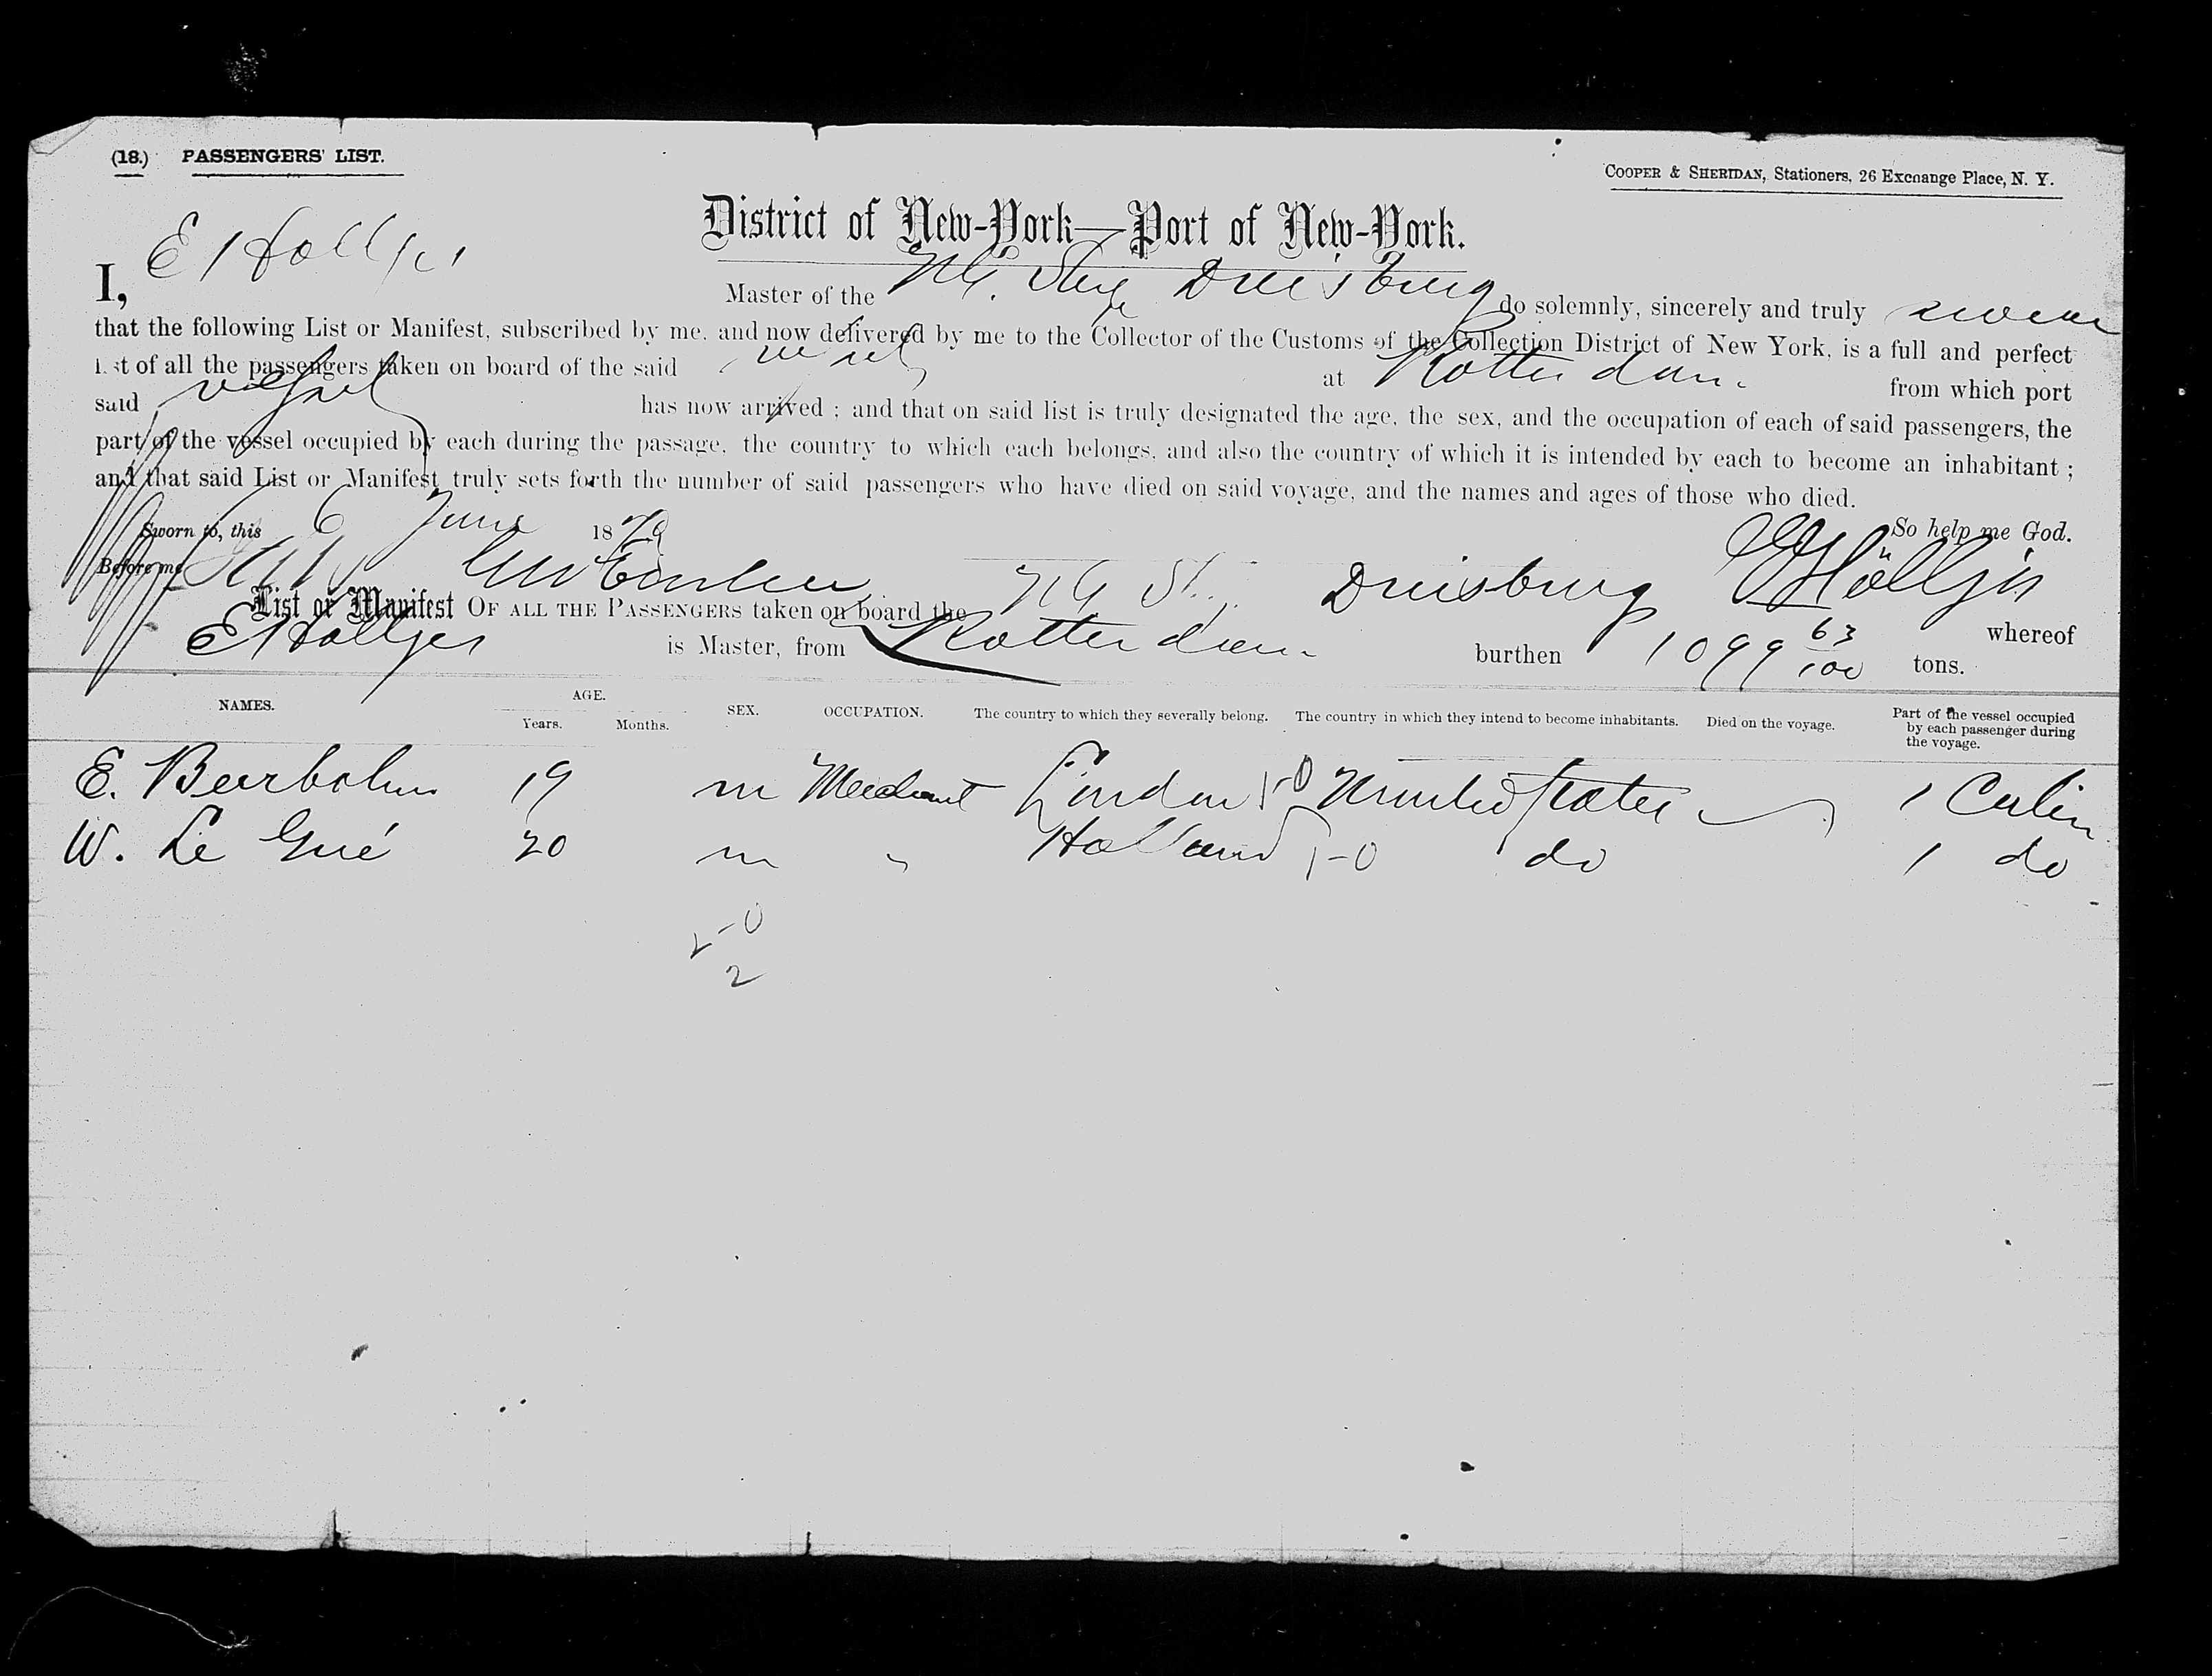 (18.) PASSENGERS' LIST.
COOPER & SHERIDAN, Stationers, 26 Exchange Place, N. Y.
District of New-York—Port of New-York.
I, E Holljes Master of the NG. Ship Duisburg do solemnly, sincerely and truly swear
that the following List or Manifest, subscribed by me, and now delivered by me to the Collector of the Customs of the Collection District of New York, is a full and perfect
list of all the passengers taken on board of the said vessel at Rotterdam from which port
said vessel has now arrived ; and that on said list is truly designated the age, the sex, and the occupation of each of said passengers, the
part of the vessel occupied by each during the passage, the country to which each belongs, and also the country of which it is intended by each to become an inhabitant ;
and that said List or Manifest truly sets forth the number of said passengers who have died on said voyage, and the names and ages of those who died.
Sworn to, this 6 June 1879 So help me God.
Before me E Hölljes
List or Manifest OF ALL THE PASSENGERS taken on board the NG Duisburg whereof
E Holljes is Master, from Rotterdam burthen 1099 63/100 tons.
NAMES. AGE. Years. Months. SEX. OCCUPATION. The country to which they severally belong. The country in which they intend to become inhabitants. Died on the voyage. Part of the vessel occupied by each passenger during the voyage.
E. Beerbohm 19 m Merchant London 1-0 United States 1 Cabin
W. Le Gué 20 m " Holland 1-0 do 1 do
2-0
2